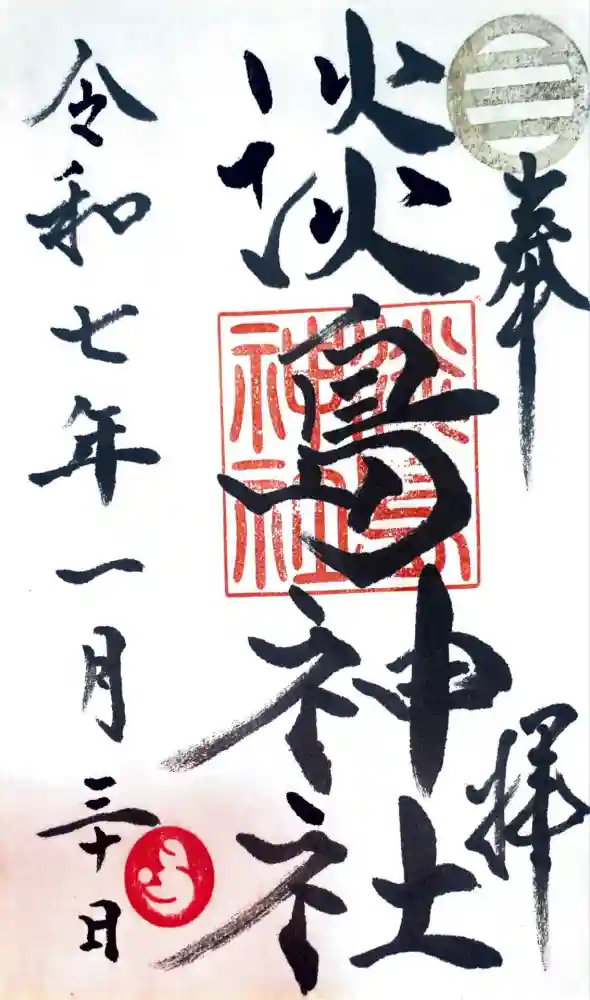 奉拝
淡島神社
淡島神社
令和七年一月三十日